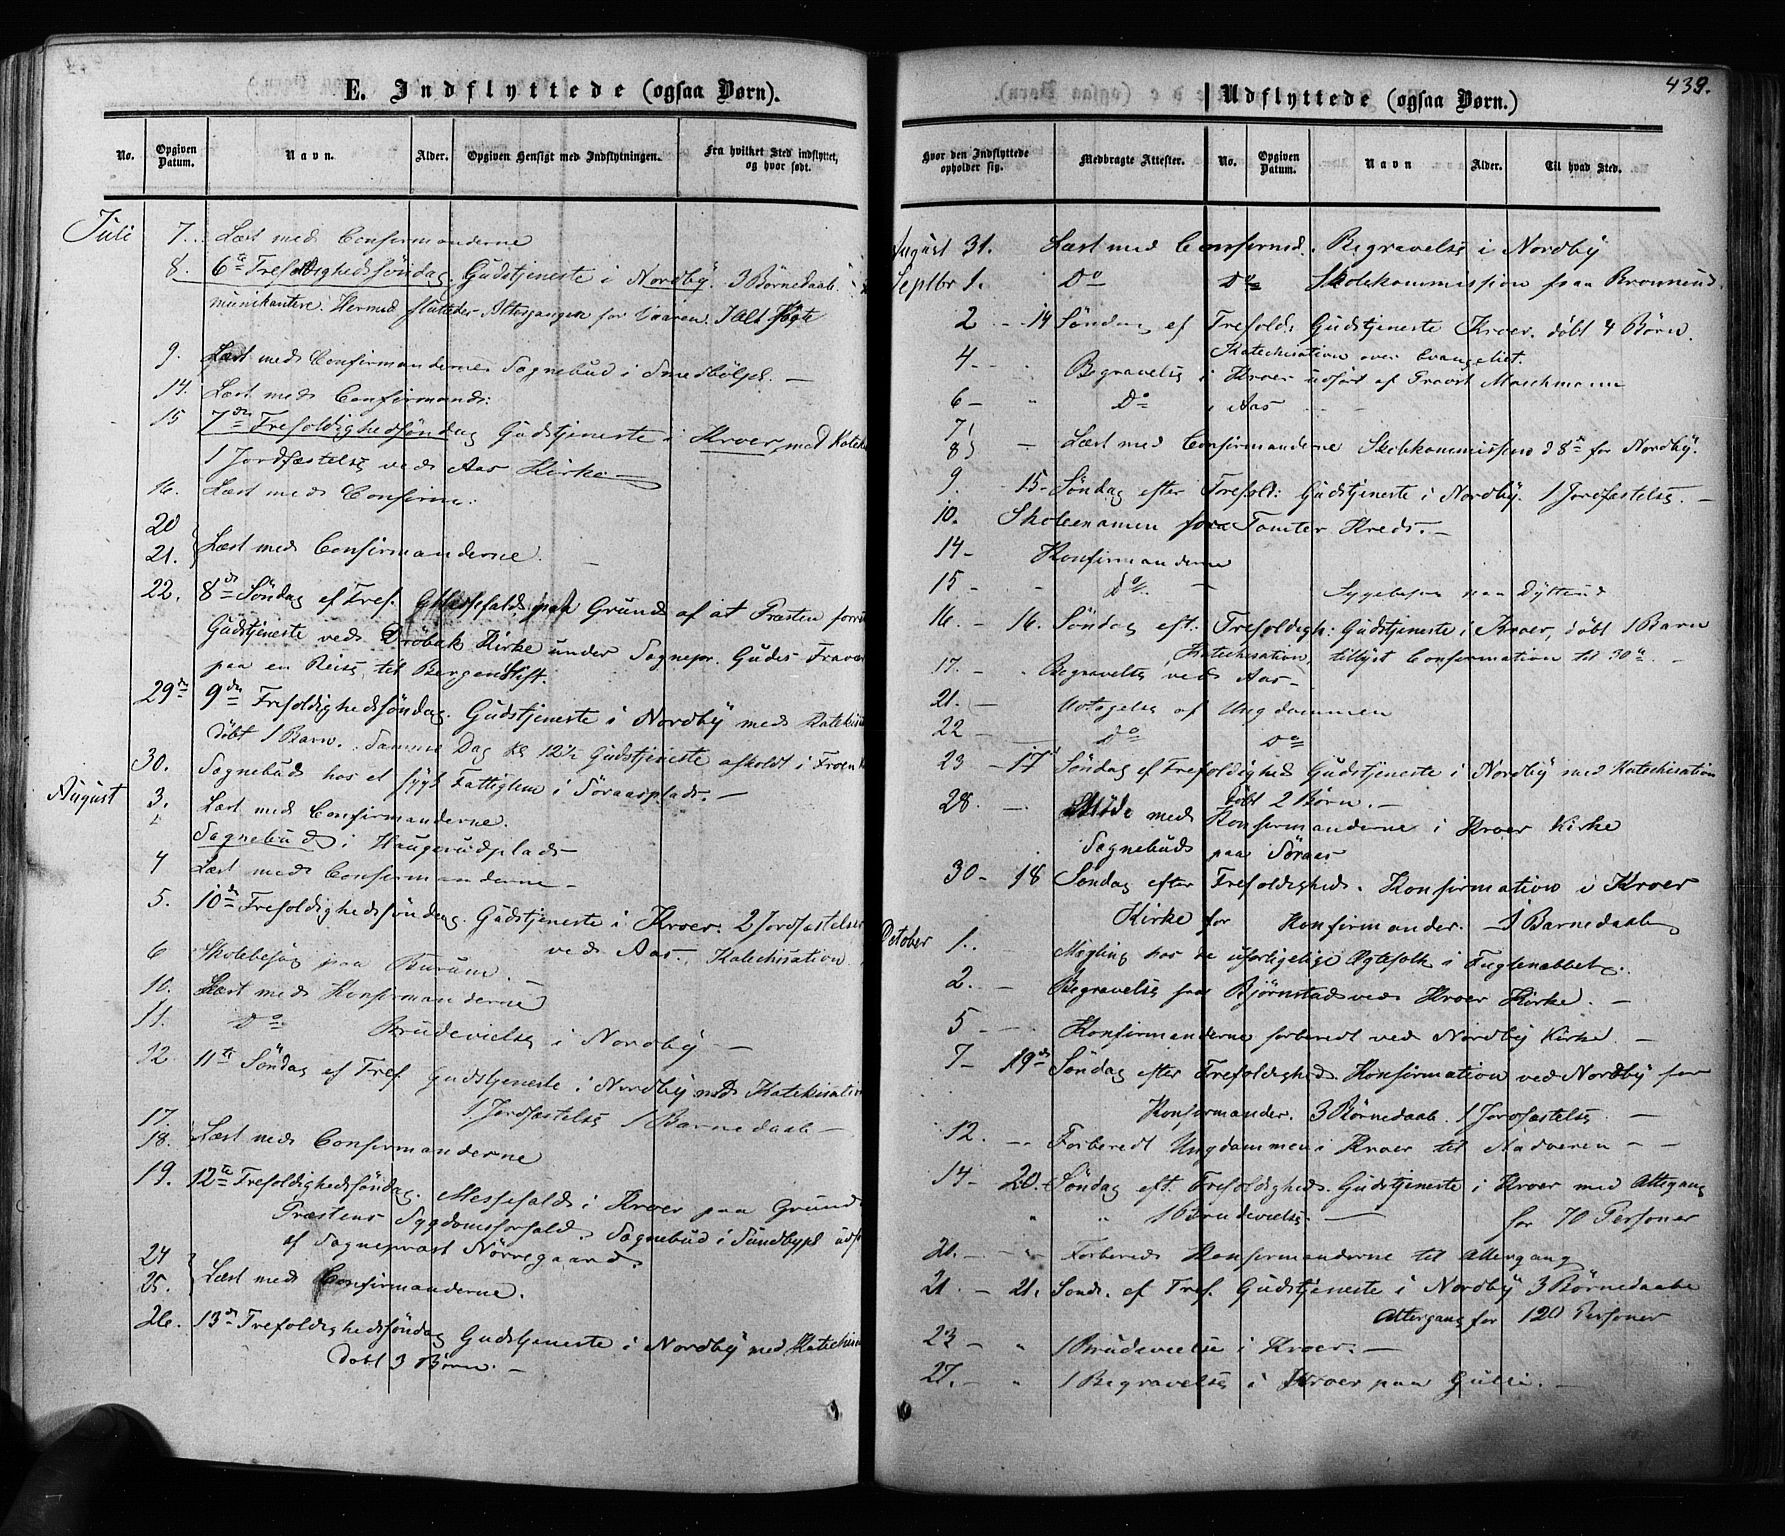 E. Indflyttede (ogsaa Børn).
No. Opgiven Datum. Navn. Alder. Opgiven Hensigt med Indflytningen. Fra hvilket Sted indflyttet, og hvor født.
Juli 7. Læst med Confirmanderne
8. 6te Trefoldighedsføndag. Gudstjeneste i Nordby. 3 Børnedaab.
munikantere. Hermed sluttedes Altergangen for Vaaren. I Alt
9. Læst med Confirmanderne Sognebud i Smedbølpl. —
14. Læst med Confirmand:
15 7de Trefoldighedsføndag Gudstjeneste i Kroer, med Katek
1 Jordfæstelse ved Aas Kirke —
16. Læst med Confirm:
20
21. Læst med Confirmanderne. —
22. 8de Søndag ef Tref. Messefald paa Grund af at Præsten forr
Gudstjeneste ved Drøbak Kirke under Sognepr. Gudes Fravær
paa en Reise til Bergens Stift.
29de 9de Trefoldighedsføndag. Gudstjeneste i Nordby med Katekis
døbt 1 Barn. Samme Dag kl 12½ Gudstjeneste afholdt i Froen
30. Sognebud hos et sygt Fattiglem i Søraasplads. —
August 3. Læst med Confirmanderne.
Sognebud i Haugerudplads
4 Læst med Confirmanderne —
5. 10de Trefoldighedsføndag. Gudstjeneste i Kroer. 2 Jordfæstelser
ved Aas. Katechisation
6 Skolebesøg paa
10. Læst med Konfirmanderne
11. Do Brudevielse i Nordby —
12. 11te Søndag ef Tref. Gudstjeneste i Nordby med Katekisation
1 Jordfæstelse 1 Barnedaab —
17.
18. Læst med Confirmanderne
19. 12te Trefoldighedsføndag. Messefald i Kroer paa Grund
Præstens Sygdomsforfald. Sognebud i Sundbypl udf
af Sognepræst Nørregaard.
24
25. Læst med Confirmanderne.
26. 13de Trefoldighedsføndag Gudstjeneste i Nordby med Katechis
døbt 3 Børn. —
439.
Udflyttede (ogsaa Børn.)
Hvor den Indflyttede opholder sig. Medbragte Attester. No. Opgiven Datum. Navn Alder. Til hvad Sted.
August 31. Læst med Confirmd. Begravelse i Nordby
Septbr 1. Do Do Skolekommission paa
2 — 14 Søndag ef Trefold: Gudstjeneste Kroer. døbt 4 Børn.
Katechisation over Evangeliet.
4 — Begravelse i Kroer udført af Provst Maschmann
6 — " Do i Aas
7
8 — Læst med Confirmanderne Skolekommission d 8de for Nordby.
9. 15. Søndag efter Trefold: Gudstjeneste i Nordby. 1 Jordfæstelse. —
10. Skoleexamen for Tomter Kreds. —
14 — Konfirmanderne
15 — " Do. — Sygebesøg paa Dyttrud
16. — 16. Søndag eft: Trefoldigh: Gudstjeneste i Kroer, døbt 1 Barn
Katechisation, tillyst Confirmation til 30te —
17. " Begravelse ved Aas —
21. — Modtagelse af Ungdommen
22 — Do Do
23 — 17 Søndag ef Trefoldighed Gudstjeneste i Nordby med Katechisation
døbt 2 Børn. —
28. — Møde med Konfirmanderne i Kroer Kirke
Sognebud paa Søraas
30 — 18 Søndag efter Trefoldighed. Konfirmation i Kroer
Kirke for Konfirmander. 1 Barnedaab
October 1. — Mægling hos de uforligelige Ægtefolk i Fuglenæbbet.
2. — Begravelse fra Bjørnstad ved Kroer Kirke. —
5 — Konfirmanderne forberedt ved Nordby Kirke. —
7 — 19de Søndag efter Trefoldighed. Konfirmation ved Nordby for
Konfirmander. 3 Børnedaab. 1 Jordfæstelse —
12. — Forberedt Ungdommen i Kroer til Nadveren — —
14 — 20. Søndag eft. Trefoldighed. Gudstjeneste i Kroer med Altergang
" " 1 Brudevielse. — for 70 Personer
20. — " Forbered. Konfirmanderne til Altergang
21. — 21. Sønd. ef Tref. Gudstjeneste i Nordby 3 Børnedaabe
Altergang for 120 Personer
23 — " 1 Brudevielse i Kroer. —
27. — " 1 Begravelse i Kroer paa Gulli. —